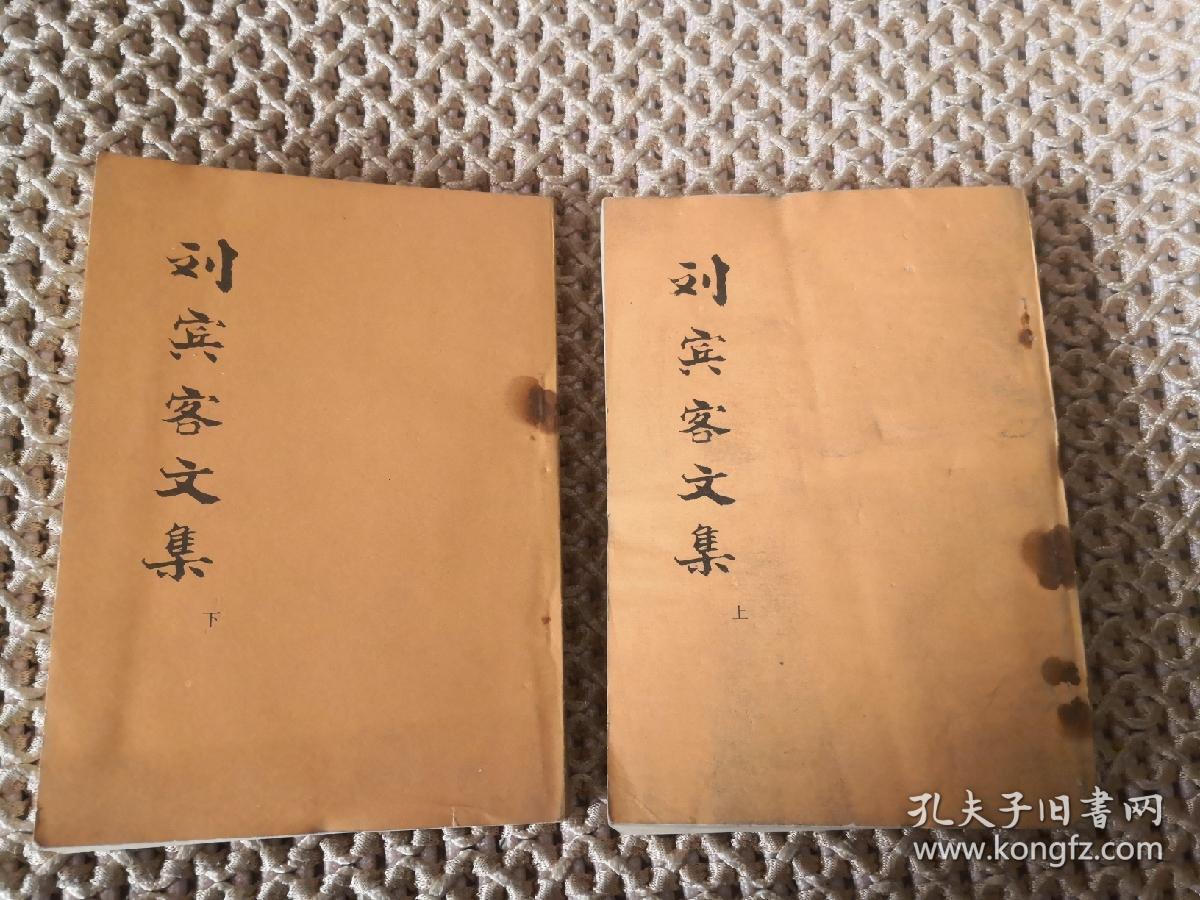 刘宾客文集
下
刘宾客文集
上
孔夫子旧書网
www.kongfz.com